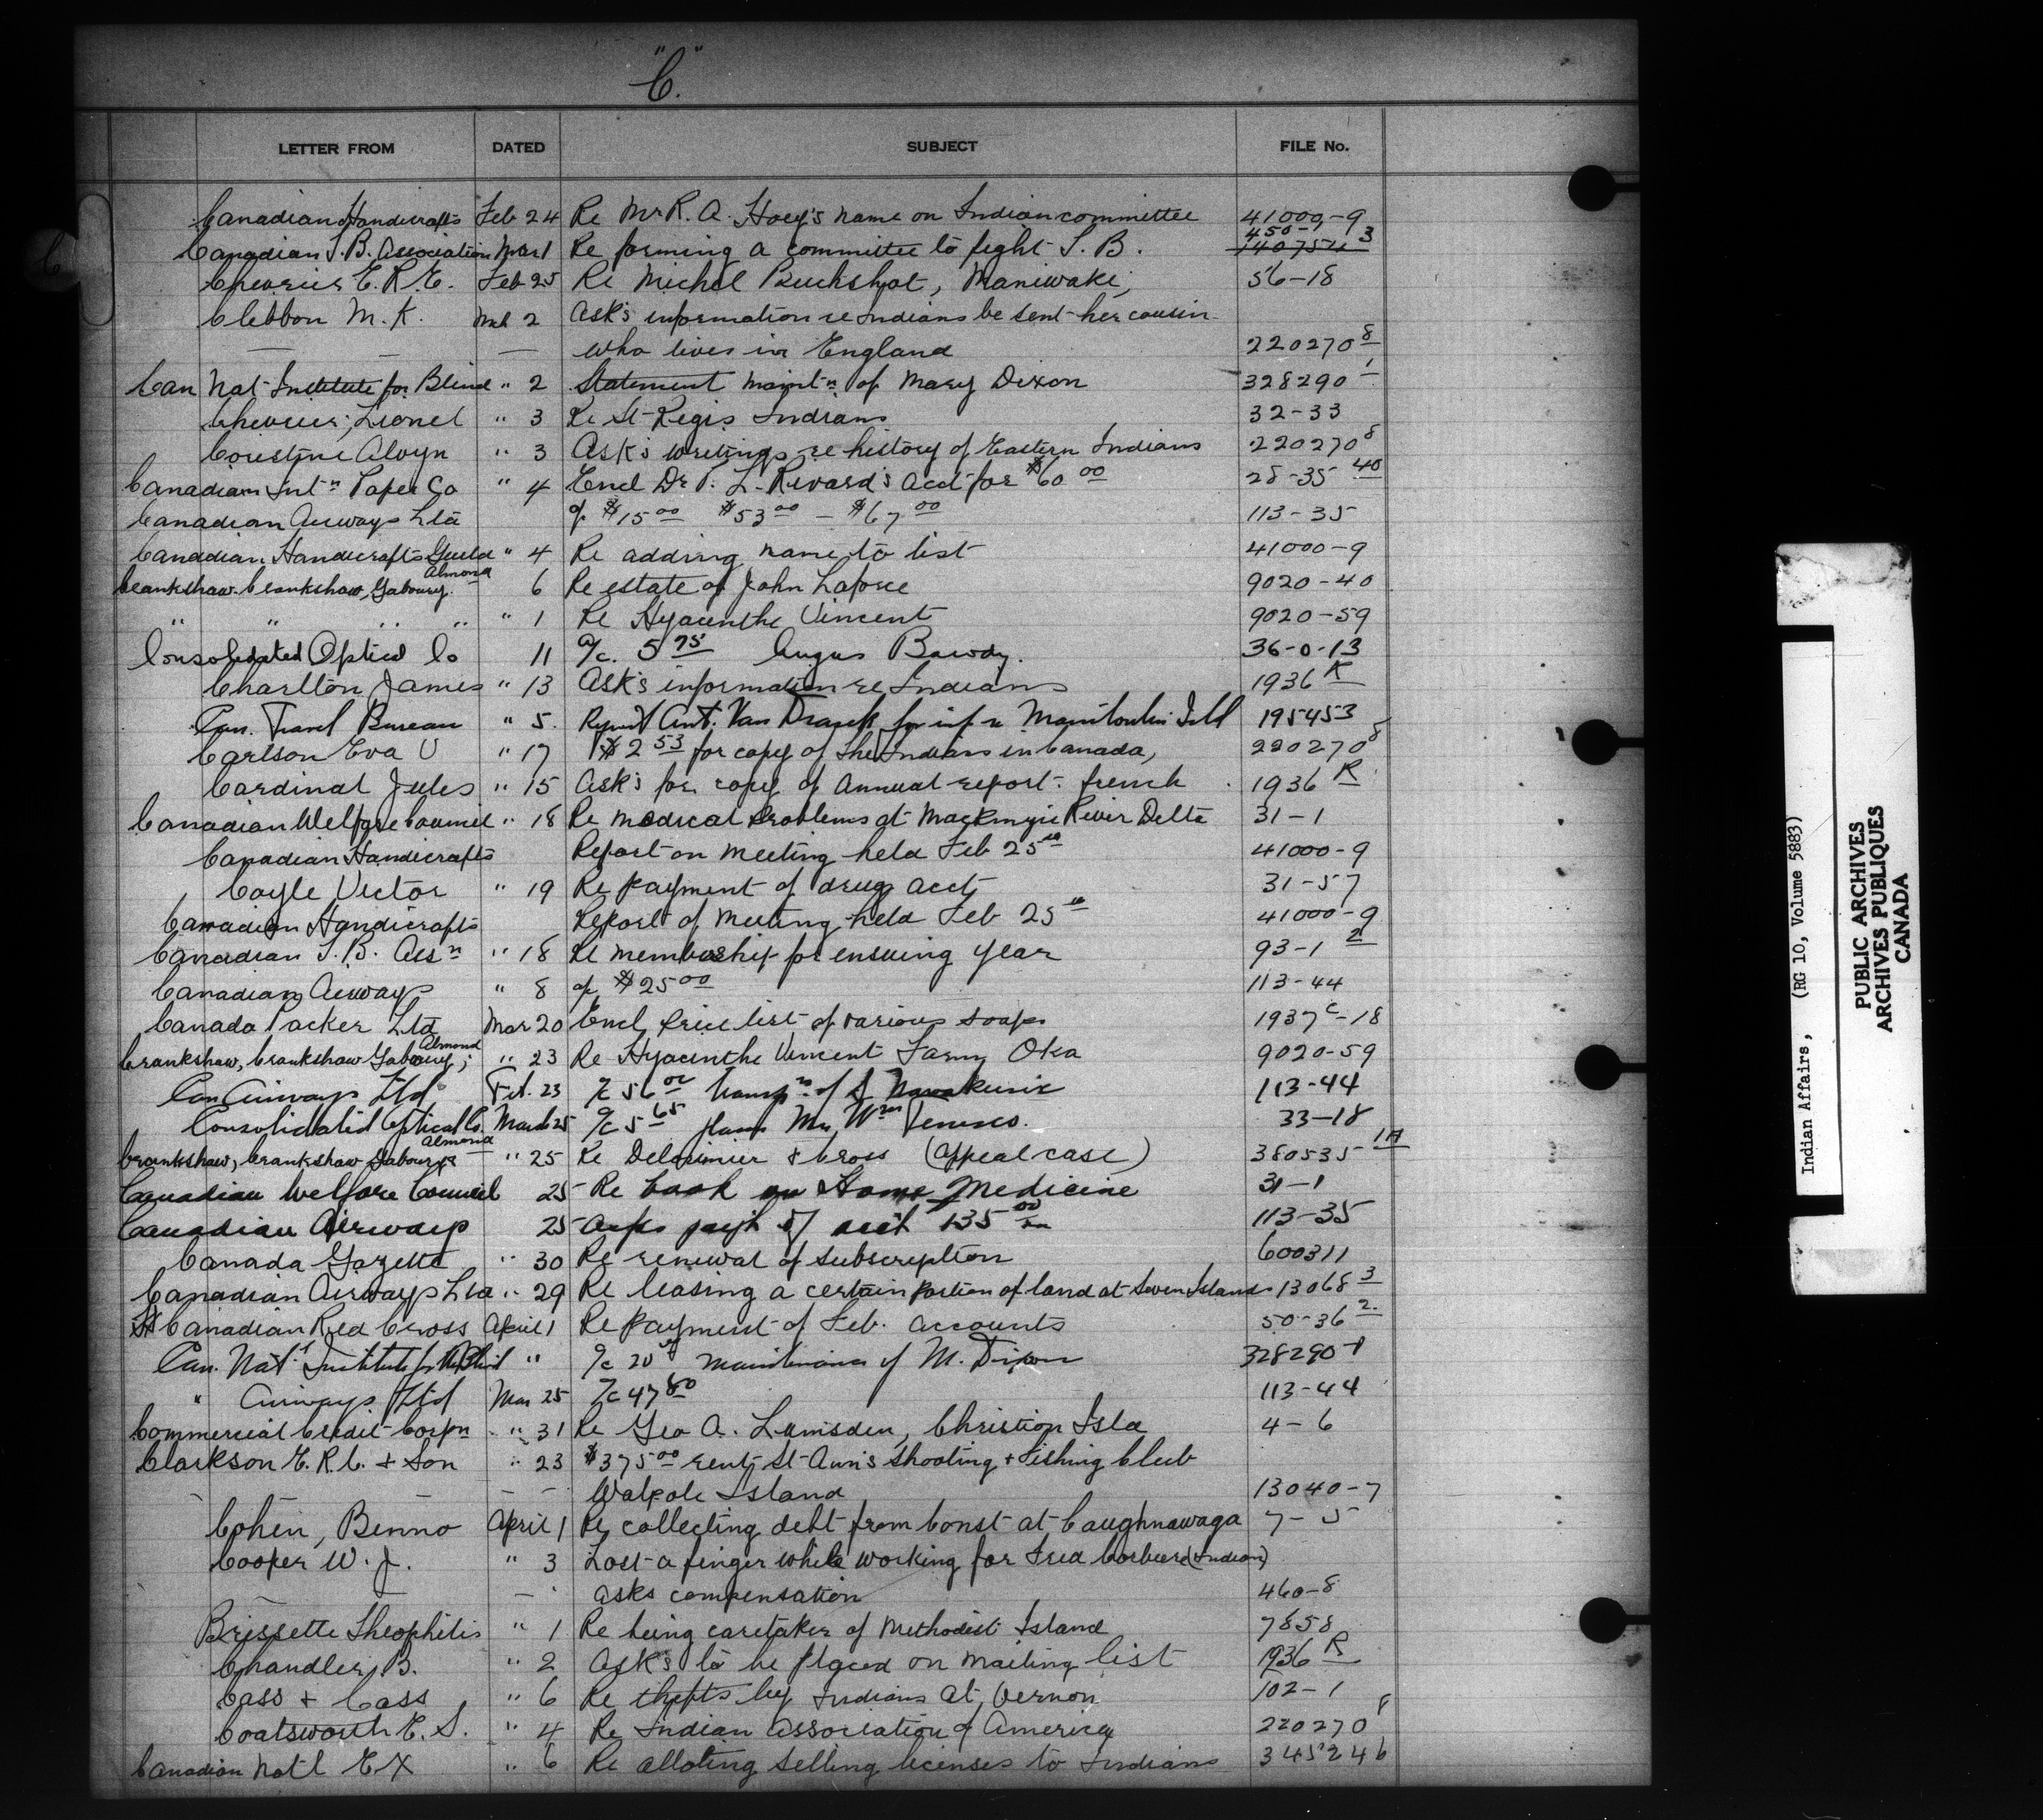 "C."
LETTER FROM DATED SUBJECT FILE No.
Canadian Handicrafts Feb 24 Re Mr R. A. Hoey's name on Indian committee 41000-9
Canadian T.B. Association Mar 1 Re forming a committee to fight T. B. 450-7 1407543
Chevrier E.R.E. Feb 25 Re Michel Buckshot, Maniwaki, 56-18
Clebbon M. K. Mch 2 Ask's information re Indians be sent her cousin
— — — who lives in England 220270 8
Can Nat Institute for Blind " 2 Statement maint'n of Mary Dixon 328290 1
Chevrier, Lionel " 3 Re St Regis Indians 32-33
Coristine Alvyn " 3 Ask's writings re history of Eastern Indians 220270 8
Canadian Int'n Paper Co " 4 Encl Dr P. L. Rivard's acct for $60 00 28-35 40
Canadian Airways Ltd of $15 00 $53 00 — $67 00 113-35
Canadian Handicrafts Guild " 4 Re adding name to list 41000-9
Crankshaw. Crankshaw, Gaboury. Almond 6 Re estate of John Laforce 9020-40
" " " " " 1 Re Hyacinthe Vincent 9020-59
Consolidated Optical Co 11 a/c. 5 75 Angus Bawdy. 36-0-13
Charlton James " 13 Ask's information re Indians 1936 R
Can. Travel Bureau " 5. for inf re Manitoulin Isld 195453
Carlson Eva U " 17 $2 53 for copy of the Indians in Canada, 220270 8
Cardinal Jules " 15 Ask's for copy of annual report - french 1936 R
Canadian Welfare Council " 18 Re medical problems at Mackenzie River Delta 31-1
Canadian Handicrafts Report on meeting held Feb 25th 41000-9
Coyle Victor " 19 Re payment of drug acct, 31-57
Canadian Handicrafts Report of meeting held Feb 25th 41000-9
Canadian T.B. Ass'n " 18 Re membership for ensuing year 93-1 2
Canadian Airways " 8 of $25 00 113-44
Canada Packer Ltd Mar 20 Encl price list of various soaps 1937 C-18
Crankshaw, Crankshaw Gaboury, Almond " 23 Re Hyacinthe Vincent Farm, Oka 9020-59
Can Airways Ltd Feb. 23 a/c 56 00 transp'n of 113-44
Consolidated Optical Co. March 25 a/c 5 65 glasses Mrs Wm 33-18
Crankshaw, Crankshaw Gaboury Almond " 25 Re Delorimier & Cross (Appeal case) 380535 1A
Canadian Welfare Council 25 Re book on Home Medicine 31-1
Canadian Airways 25 asks pay't of acct 135 00 113-35
Canada Gazette " 30 Re renewal of subscription 600311
Canadian Airways Ltd " 29 Re leasing a certain portion of land at Seven Islands 13068 3
Canadian Red Cross April 1 Re payment of Feb. accounts 50-36 2
Can. Nat'l Institute for the Blind " a/c 20 maintenance of M. Dixon 328290-1
" Airways Ltd Mar 25 a/c 47 80 113-44
Commercial Credit Corpn " 31 Re Geo A. Lumsden, Christian Isld 4-6
Clarkson E. R. C. & Son " 23 $375 00 rent, St Ann's Shooting & Fishing Club
— — — Walpole Island 13040-7
Cohen, Benno April 1 Re collecting debt from Const at Caughnawaga 7-5
Cooper W. J. " 3 Lost a finger while working for Fred Corbiere (Indian)
— asks compensation 460-8
Brissette Theophilis " 1 Re being caretaker of Methodist Island 7858
Chandler, B. " 2 Ask's to be placed on mailing list 1936 R
Cass & Cass " 6 Re thefts by Indians at Vernon 102-1
Coatsworth E. S. " 4 Re Indian Association of America 220270 8
Canadian Nat'l EX " 6 Re alloting selling licenses to Indians 345246
Indian Affairs, (RG 10, Volume 5883)
PUBLIC ARCHIVES
ARCHIVES PUBLIQUES
CANADA